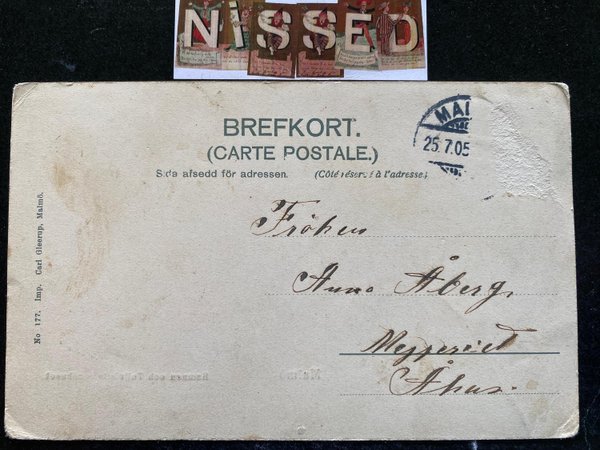 NISSED
BREFKORT.
(CARTE POSTALE.)
Sida afsedd för adressen. (Côté réservé à l'adresse.)
MAL
25.7.05
Fröken
Anna Åberg,
Mejeriet
Åhus.
No 177. Imp. Carl Gleerup, Malmö.